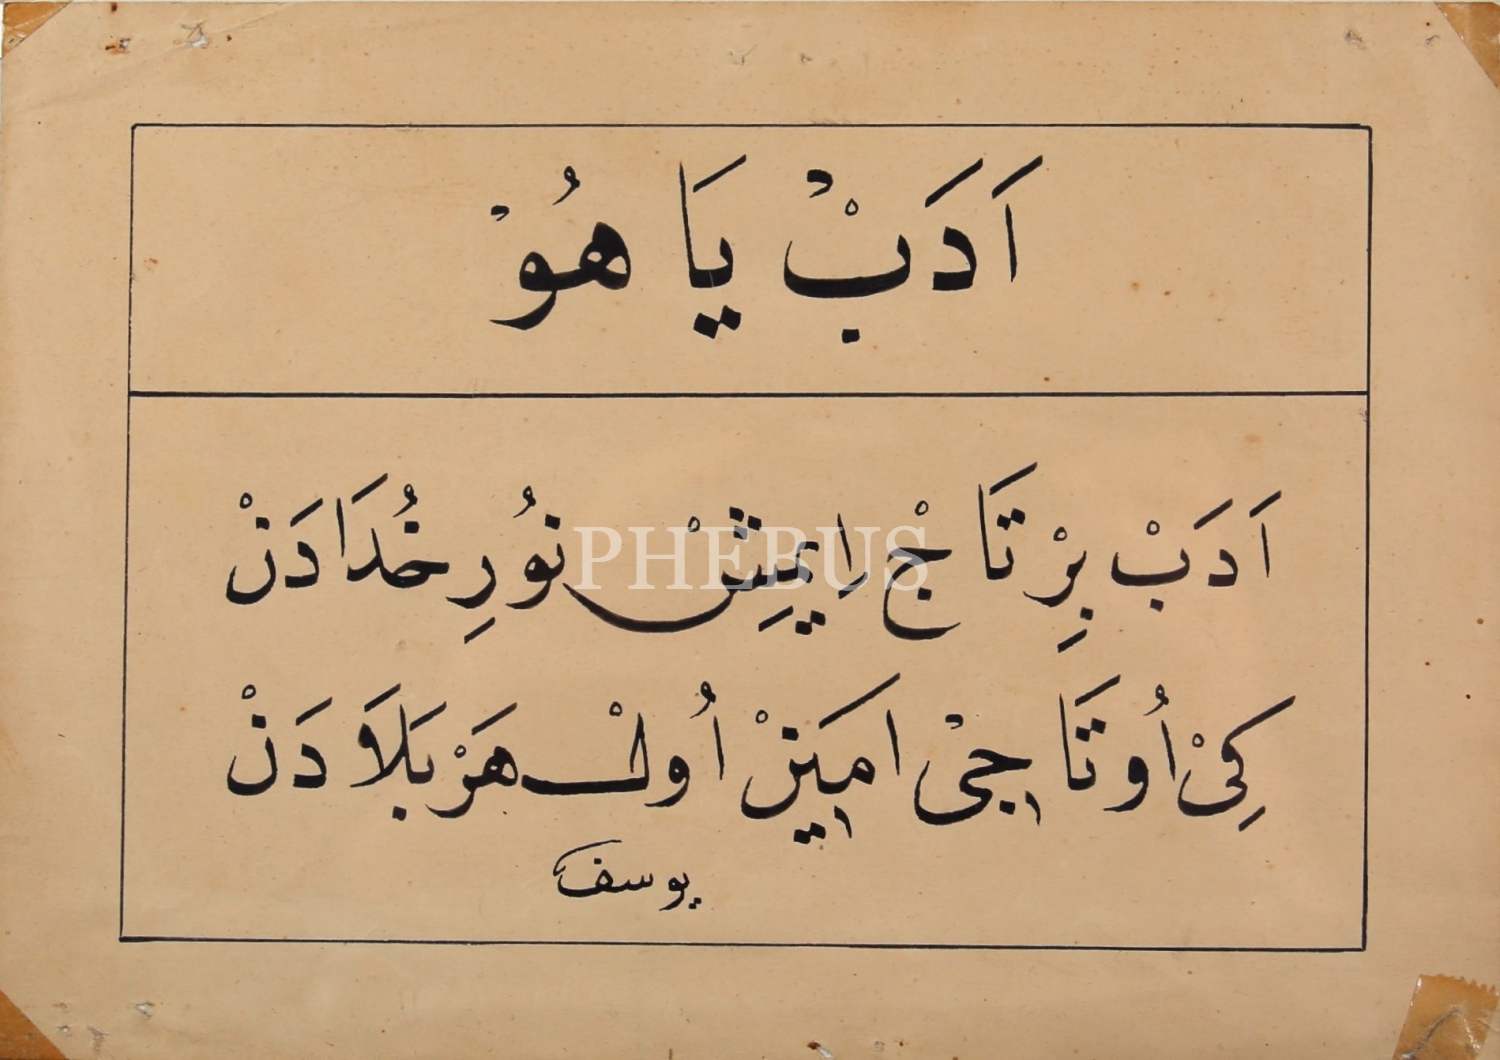 اَدَبْ يَا هُوْ
اَدَبْ بِرْ تَاجْ ايمِشْ نُورِ خُدَادَنْ
كِيْ اُو تَاجِىْ امَيِنْ اُولْ هَرْ بَلَادَنْ
يوسف
PHEBUS